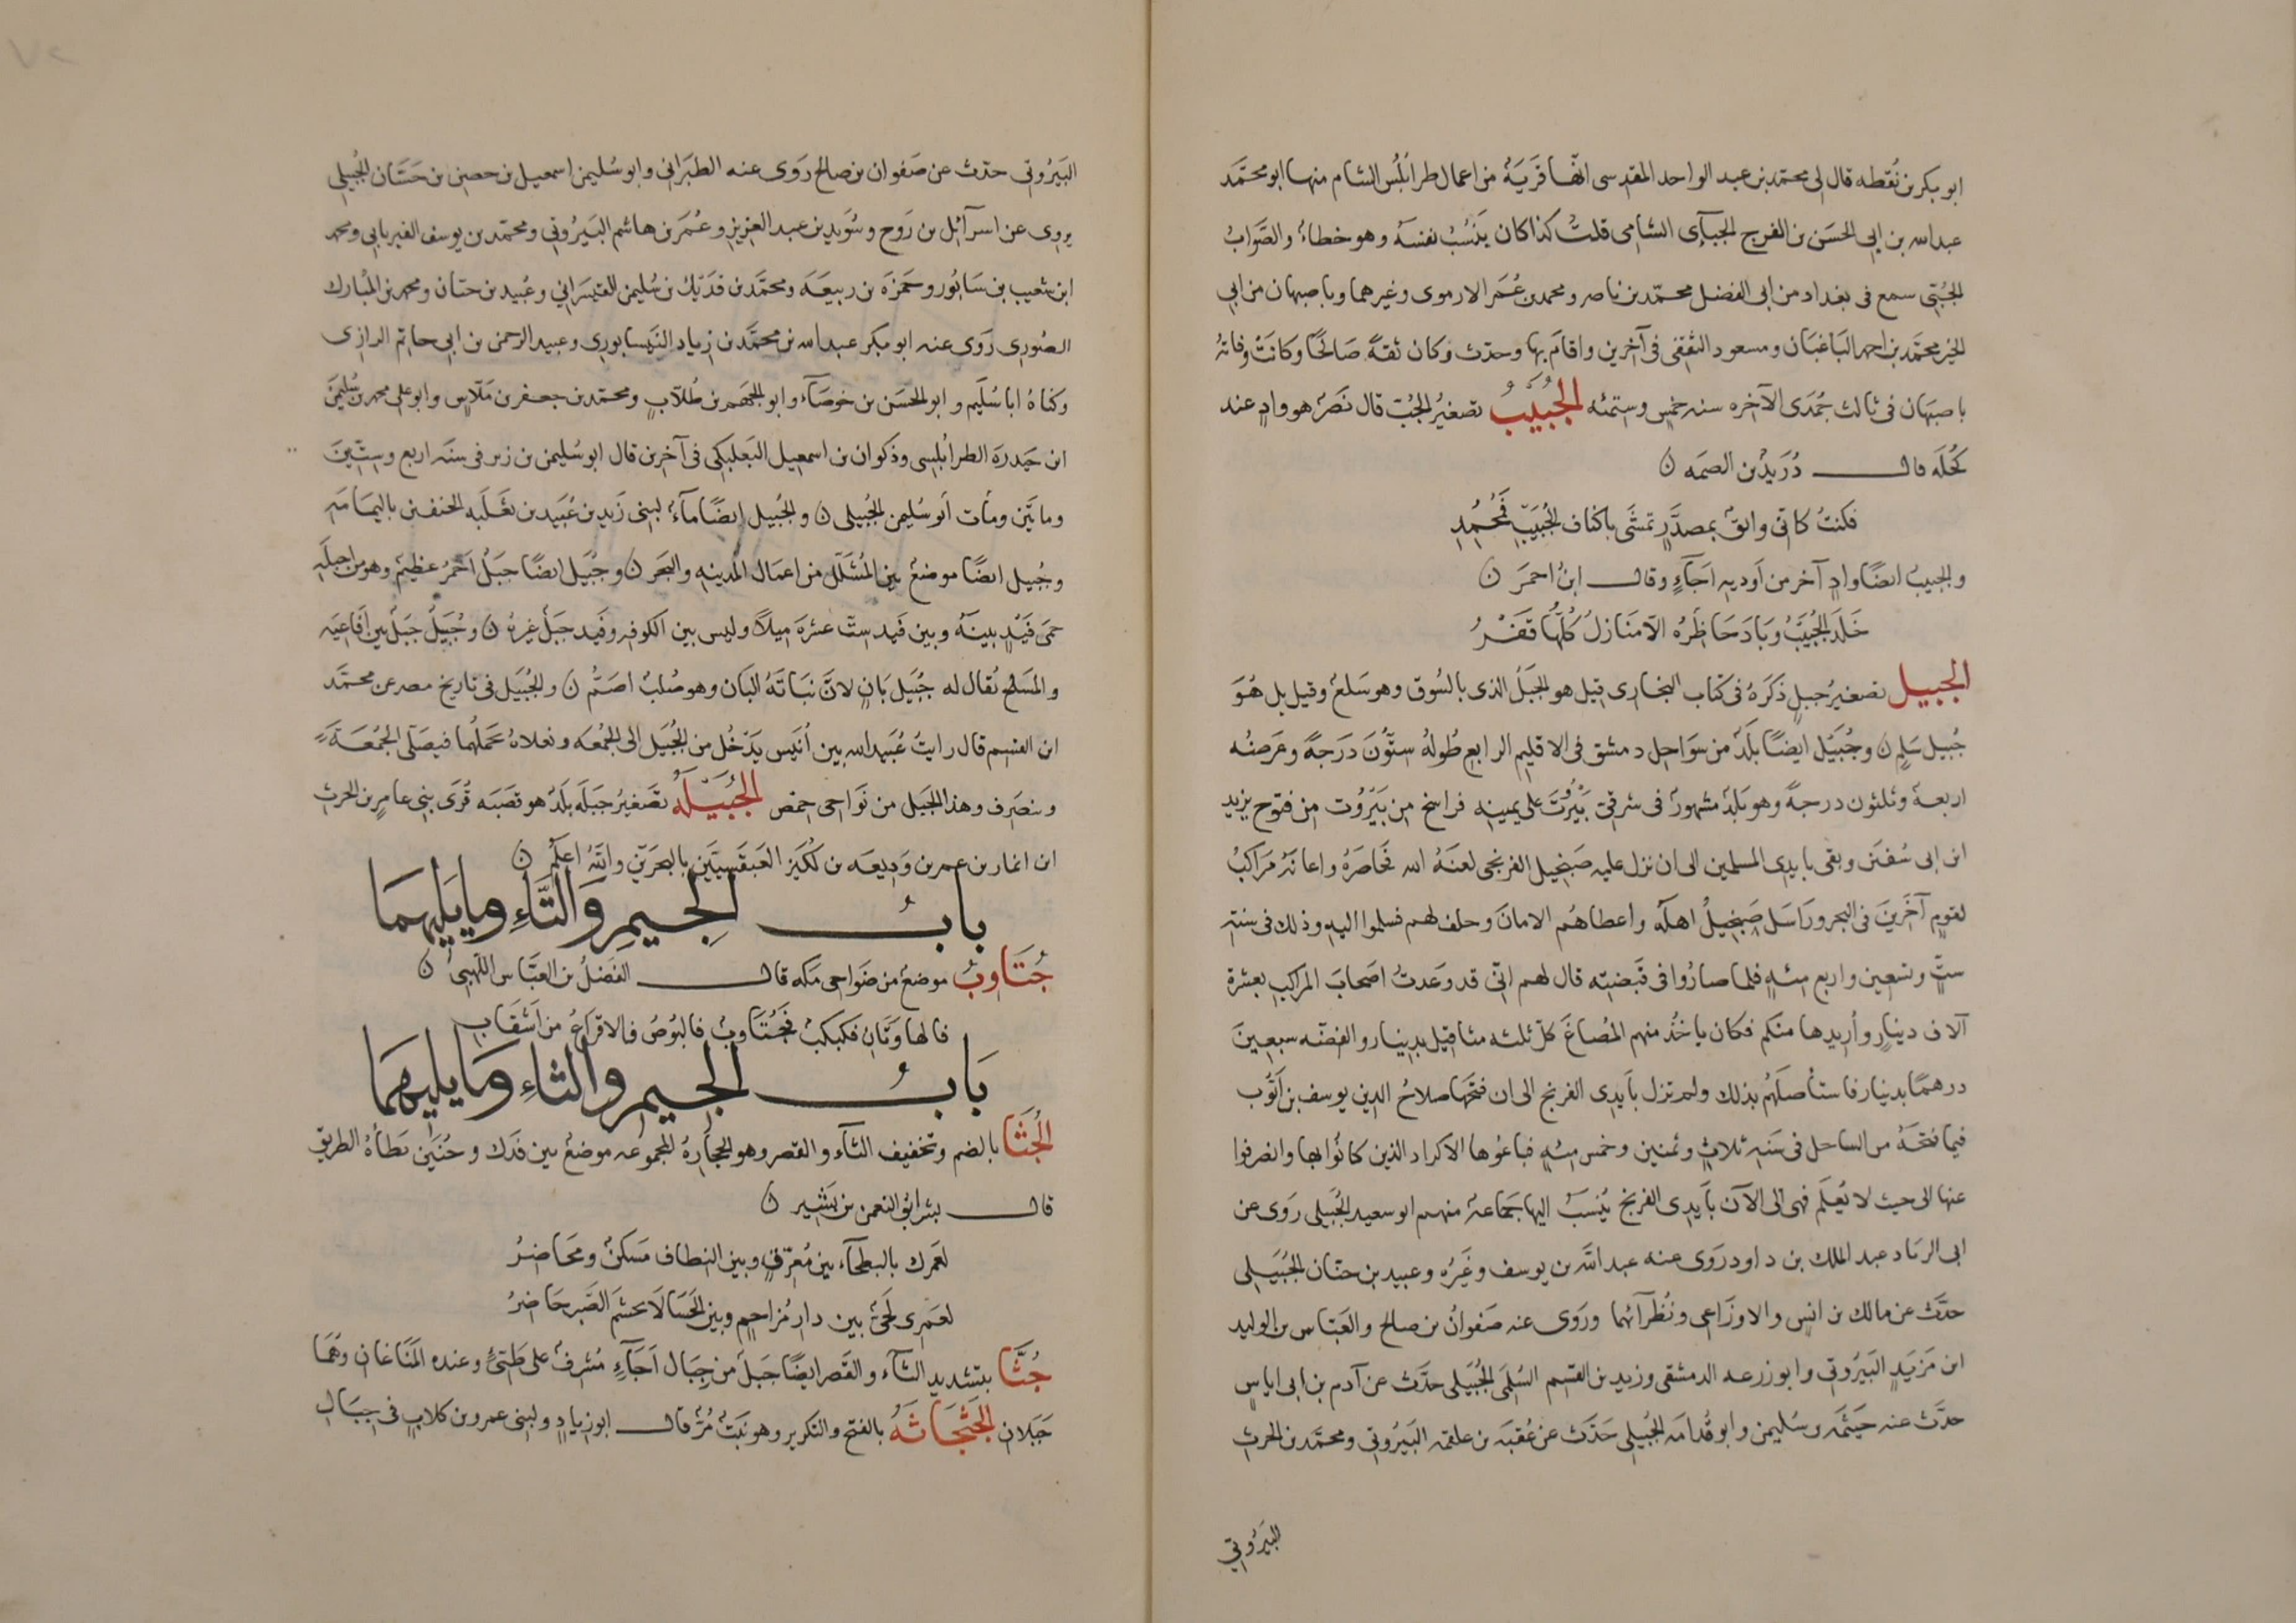 ابو بكر بن نُقطه قال لى محمّد بن عبد الواحد المقدسى انّها قَريَةٌ من اعمال طرابُلُس الشام منها ابو محمّد
عبد الله بن ابى الحسَن بن الفرج الجبآئى الشامى قلتُ كذا كان يَنسُبُ نفسَهُ وهو خطاءٌ والصَّوَابُ
الجُبّى سمع فى بغداد من ابى الفضل محمّد بن ناصر ومحمد بن عُمَر الارموى وغيرهما وباصبهان من ابى
الخير محمّد بن احمد البَاغبَان ومسعود الثقفى فى آخرين واقامَ بها وحدّث وكان ثقةً صَالحًا وكانتْ وفاتهُ
باصبَهان فى ثالث جُمَدَى الآخره سنه خمس وستمئه الجُبَيبُ تصغيرُ الجُبّ قال نَصْرٌ هو وادٍ عند
كُحلَه قال دُرَيدُ بن الصمَه ن
فكنتُ كانّى واثقٌ بمصدَّرٍ تمشَّى باكناف الجُبَيبِ فَمُحْمِدِ
والجبيبُ ايضًا وادٍ آخر من اَوديه اَجَآءٍ وقال ابنُ احمرَ ن
خَلَدَ الجُبَيبُ وبَادَ حَاضِرُه الّا مَنَازلُ كُلُّها قَفْرُ
الجبيل تصغيرُ جبلٍ ذكَرَهُ فى كتاب البخارى قيل هو الجبَلُ الذى بالسُّوق وهو سَلعٌ وقيل بل هُوَ
جُبيل سَلعٍ ن وجُبَيْل ايضًا بلَدٌ من سوَاحل دمشق فى الاقليم الرابع طُولهُ ستُّونَ دَرَجةً وعَرضُه
اربعة وثلثون درجةً وهو بَلدٌ مشهورٌ فى شرقىّ بَيْرُوتَ على ثمينه فراسخ من بَيْرُوت من فتوح يزيد
ابن ابى سُفيَن وبقى بايدى المسلمين الى ان نزل عليه صَنجيل الفرنجى لعنَهُ الله فحَاصَرَهُ واعانهُ مَراكبُ
لقومٍ آخَرينَ فى البحر ورَاسَل صَنجيلُ اهلَه واعطاهُم الامانَ وحلف لهم فسلموا اليه وذلك فى سنه
ستٍّ وتسعين واربع مئهٍ فلما صارُوا فى قَبضتِه قال لهم انّى قد وَعدتُ اصحَابَ المراكبِ بعشرة
آلاف دينارٍ واُريدها منكم فكان ياخُذ منهم المُصاغَ كلّ ثلثه مثاقيل بدينار والفضّه سبعينَ
درهمًا بدينار فاستأصَلَهُم بذلك ولم تزل بايدى الفرنج الى ان فتحَها صلاحُ الدين يوسف بن ايُّوب
فيما فتحَهُ من الساحل فى سَنه ثلاثٍ وثمنين وخمس مئهٍ فباعُوها الاكراد الذين كانُوا بها وانصرفوا
عنها الى حيث لا يُعلَم فهى الى الآن بايدى الفرنج يُنسَبُ اليها جَماعة منهم ابو سعيد الجُبَيلى رَوَى عن
ابى الزياد عبد الملك بن داود رَوَى عنه عبد الله بن يوسف وغَيْرُه وعبيد بن حيّان الجُبَيلى
حدّث عن مالك بن انسٍ والاوزَاعى ونُظَرآئهما ورَوَى عنه صَفوانُ بن صالح والعَبّاس بن الوليد
ابن مَزيَدٍ البَيْرُوتى وابو زرعه الدمشقى وزيد بن القسم السُّلَمى الجُبَيلى حدّث عن آدم بن ابى اياسٍ
حدّث عنه خَيثَمه بن سُليمن وابو قُدامَه الجُبيلى حَدّث عن عُقبَه بن علقمه البَيْرُوتى ومحمّد بن الحرث
البَيْرُوتى
البَيْرُوتى حدّث عن صَفوان بن صالح رَوَى عنه الطبَرانى وابو سُليمن اسمعيل بن حصين بن حَسّان الجُبيلى
يروى عن اسرآئل بن رَوح وسُوَيد بن عبد العزيز وعُمَر بن هاشم البَيرُوتى ومحمّد بن يوسف الفيريابى ومحمد
ابن شعيب بن سَابُور وحَمزَه بن ربيعَه ومحمّد بن فُدَيك بن سُليمن القَيسَرانى وعُبيد بن حيّان ومحمد بن المُبارك
الصُّورى رَوَى عنه ابو بكر عبد الله بن محمَّد بن زياد النَّيسابورى وعبد الرحمن بن ابى حاتم الرازى
وكناهُ ابا سُلَيم وابو الحسَن بن خوصَآء وابو الجهم بن طُلَّابٍ ومحمّد بن جعفر بن مَلّاسٍ وابو على محمد بن سُليمنَ
ابن حَيدرَه الطرابُلسِى وذكوان بن اسمعيل البَعلَبكى فى آخرين قال ابو سُليمن بن زبر فى سنَه اربع وستّينَ
ومايَتَين ومأت ابو سُليمن الجُبَيلى ن والجُبيل ايضًا مآءٌ لبنى زَيد بن عُبَيد بن ثعلَبه الحنفيّن باليَمامه
وجُبيل ايضًا موضعٌ بين المُشَلَّل من اعمال المَدينه والبَحر ن وجُبَيل ايضًا جبَلٌ اَحْمَرُ عظيمٌ وهو من اَجبلَه
حمَى فَيْدٍ بينَهُ وبين فَيد ستّ عشرَه ميلاً وليس بين الكوفه وفَيد جبَلٌ غيره ن وجُبَيلٌ جبَلٌ بين اَفاعيَه
والمَسلح يُقال له جُبَيل بَانٍ لانّ نبَاتَهُ البَان وهو صُلبٌ اصَمُّ ن والجُبَيل فى تاريخ مصر عن محمّد
ابن القسم قال رايتُ عُبيد الله بن اُنَيس يَدْخُل من الجُبَيل الى الجُمعَه ونعلاهُ يَحملُهُما فيصَلّى الجُمُعَةَ
وينصَرِف وهذا الجبَيل من نَواحى حمص الجُبَيْلَه تَصغيرُ جبلَه بلَدٌ هو قصَبَه قُرَى بنى عامر بن الحرث
ابن انمار بن عمر بن وَديعَه بن لُكَيز العَبقَسيّين بالبحرَين والله اعلَم ن
بابُ الجيمِ وَالتَّاءِ ومايَليهمَا
جُتَاوِبُ موضعٌ من ضَواحى مَكه قال الفَضلُ بن العبّاس اللّهَبىُّ ن
فالهاوَتَانِ فكَبكبٌ فَجُتَاوِبٌ فالبُوصُ فالاقراعُ من اَشقَابِ
بَابُ الجيم والثاءِ وَمايليهمَا
الجُثَا بالضم وتخفيف الثآء والقصر وهو الحجَارهُ المجموعه موضعٌ بين فَدَك وحُنَين يَطأهُ الطريق
قال بشر ابن النعمن بن بَشير ن
لعَمرك بالبطحآء بين مُعَرَّفٍ وبين النطاف مَسكنٌ ومَحَاضرُ
لعَمرى لَحَىٌّ بين دار مُزاحمٍ وبين الجَثا لَا يحشمَ الصَّبرَ حَاضرُ
جُثَّا بتشديد الثآء والقَصر ايضًا جَبلٌ من جِبَال اَجَآءٍ مُشرفٌ على طيّئ وعنده المَنَاعان وهُمَا
جَبَلان الجَثجَاثَهُ بالفتح والتكرير وهو نَبتٌ مُرٌّ قال ابو زيادٍ ولبنى عمرو بن كلابٍ فى جبَالِ